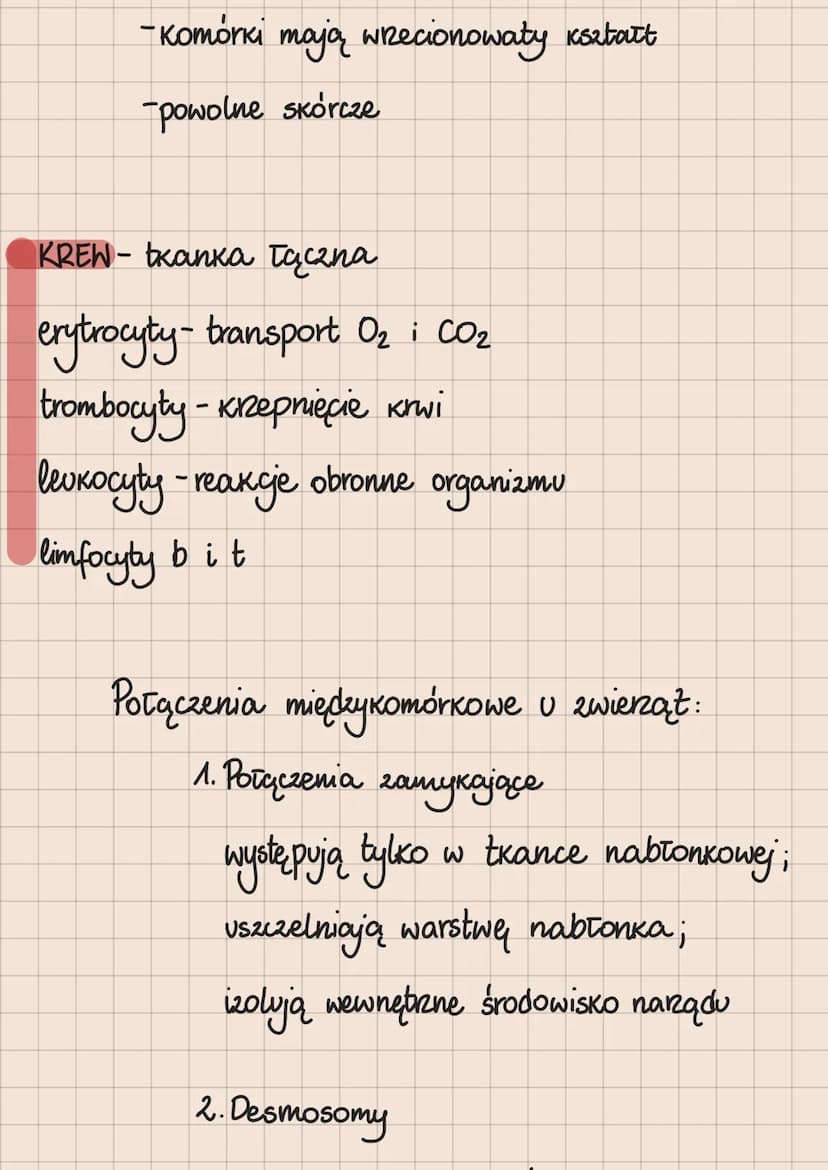 -komórki mają wrzecionowaty kształt
-powolne skórcze
KREW - tkanka łączna
erytrocyty- transport O₂ i CO₂
trombocyty - krzepnięcie krwi
leukocyty - reakcje obronne organizmu
limfocyty b i t
Połączenia międzykomórkowe u zwierząt:
1. Połączenia zamykające
występują tylko w tkance nabłonkowej;
uszczelniają warstwę nabłonka;
izolują wewnętrzne środowisko narządu
2. Desmosomy